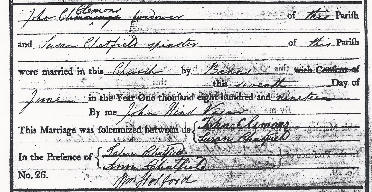 Clemons
John of this Parish
and Susan Chatfield spinster of this Parish
were married in this Church by Banns with Consent of
this seventh Day of
June in the Year One thousand eight hundred and nineteen
By me John
This Marriage was solemnized between us John Clemons
Susan Chatfield
In the Presence of
Ann Chatfield
No. 26. Wm